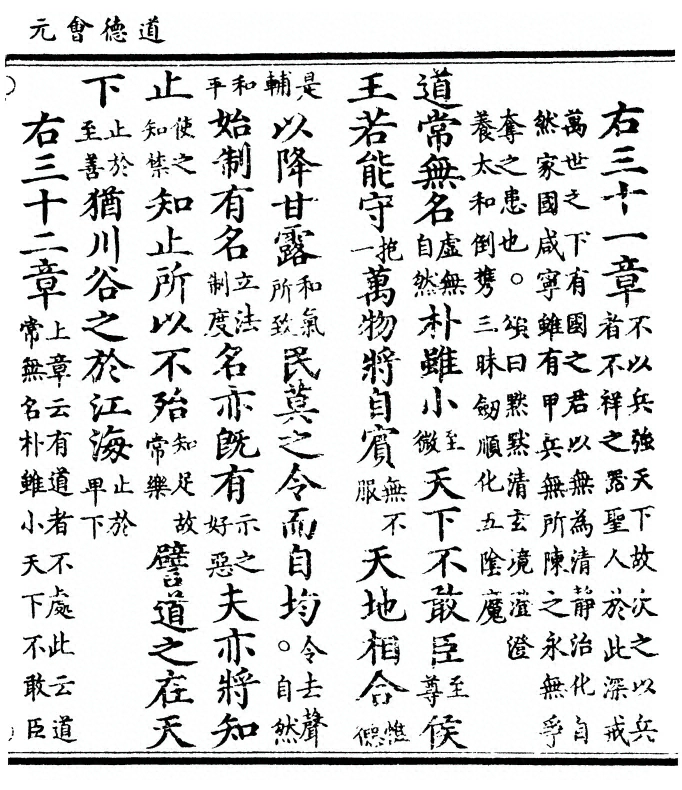 道德會元
右三十一章不以兵強天下故次之以兵者不祥之器聖人於此深戒
萬世之下有國之君以無為清靜治化自
然家國咸寧雖有甲兵無所陳之永無爭
奪之患也○頌曰默默清玄境澄澄
養太和倒攜三昧劒順化五陰魔
道常無名虛無自然朴雖小至微天下不敢臣至尊侯
王若能守抱一萬物將自賓無不服天地相合惟德
是輔以降甘露和氣所致民莫之令而自均○令去聲自然
和平始制有名立法制度名亦既有示之好惡夫亦將知
止使之知禁知止所以不殆知足故常樂譬道之在天
下止於至善猶川谷之於江海止於卑下
右三十二章上章云有道者不處此云道常無名朴雖小天下不敢臣